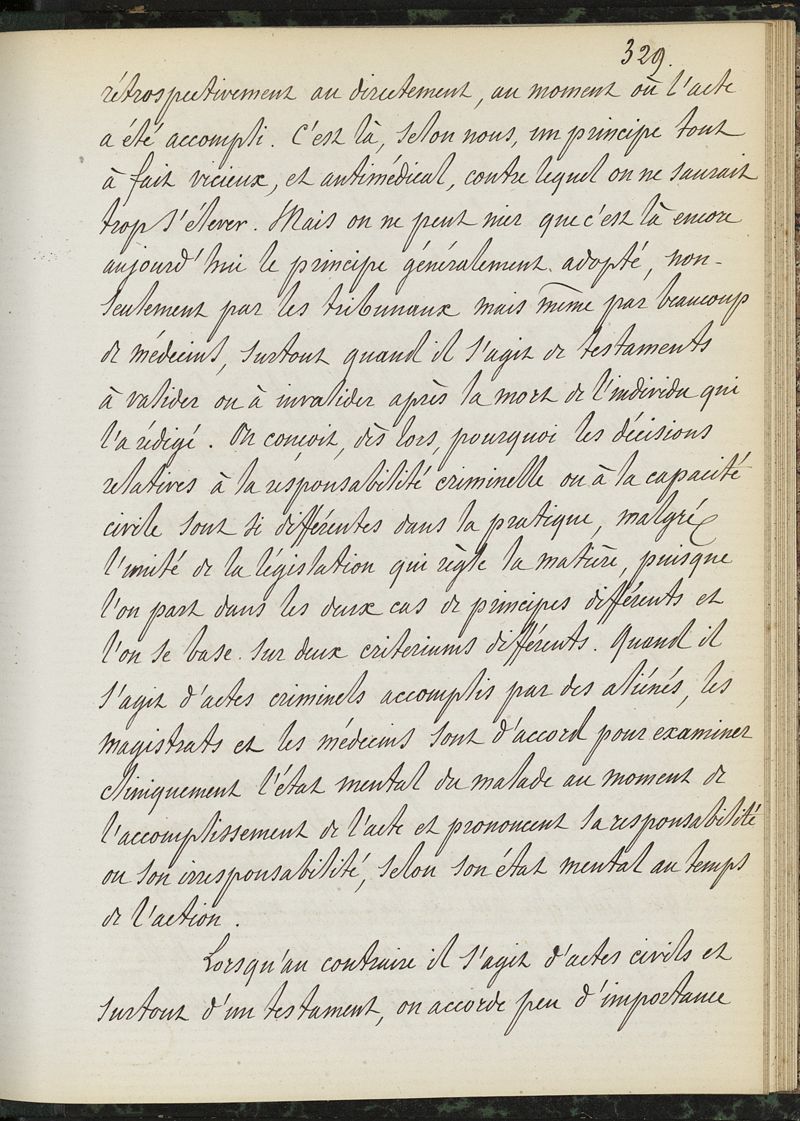 329.
rétrospectivement au directement, au moment où l'acte
a été accompli. C'est là, selon nous, un principe tout
à fait vicieux, et antimédical, contre lequel on ne saurait
trop s'élever. Mais on ne peut nier que c'est là encore
aujourd'hui le principe généralement adopté, non-
seulement par les tribunaux mais même par beaucoup
de médecins, surtout quand il s'agit de testaments
à valider ou à invalider après la mort de l'individu qui
l'a rédigé. On conçoit, dès lors, pourquoi les décisions
relatives à la responsabilité criminelle ou à la capacité
civile sont si différentes dans la pratique, malgré
l'unité de la législation qui règle la matière, puisque
l'on part dans les deux cas de principes différents et
l'on se base sur deux criteriums différents. Quand il
s'agit d'actes criminels accomplis par des aliénés, les
magistrats et les médecins sont d'accord pour examiner
cliniquement l'état mental du malade au moment de
l'accomplissement de l'acte et prononcent sa responsabilité
ou son irresponsabilité, selon son état mental au temps
de l'action.
Lorsqu'au contraire il s'agit d'actes civils et
surtout d'un testament, on accorde peu d'importance